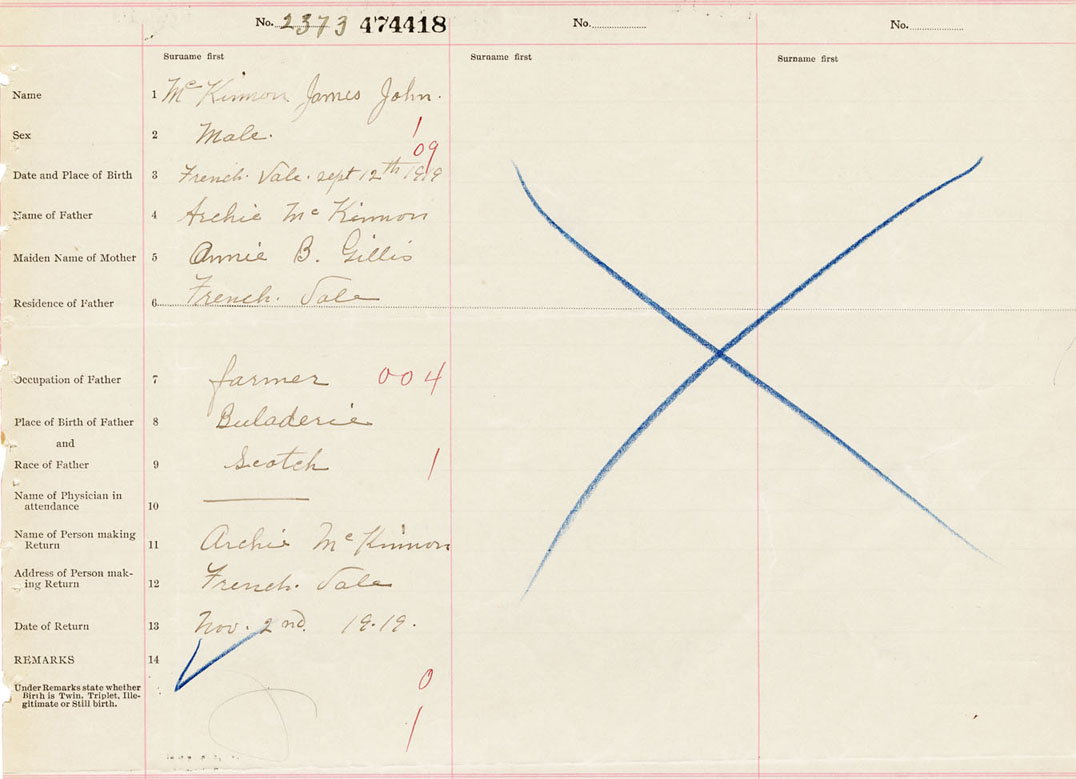 No. 2373 474418 No. No.
Surname first Surname first Surname first
Name 1 McKinnon James John.
Sex 2 Male. 1
09
Date and Place of Birth 3 French. Vale. sept 12th 1919
Name of Father 4 Archie McKinnon
Maiden Name of Mother 5 Annie B. Gillis
Residence of Father 6 French. Vale
Occupation of Father 7 farmer 004
Place of Birth of Father 8 Buladerie
and
Race of Father 9 Scotch 1
Name of Physician in
attendance 10
Name of Person making
Return 11 Archie McKinnon
Address of Person mak-
ing Return 12 French. Vale
Date of Return 13 Nov. 2nd. 19.19.
REMARKS 14
Under Remarks state whether 0
Birth is Twin, Triplet, Ille-
gitimate or Still birth.
1